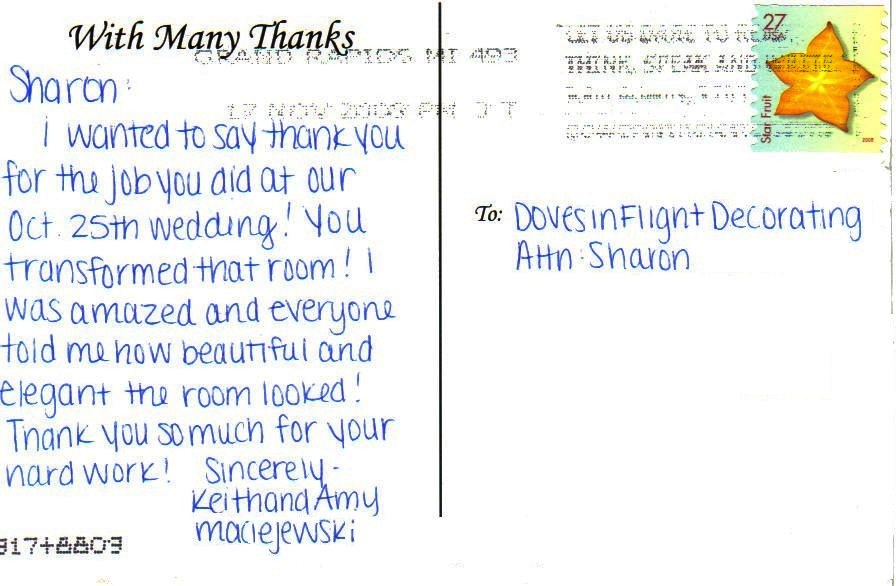 With Many Thanks
GRAND RAPIDS MI 493
17 NOV 2008 PM 2 T
27
USA
Star Fruit
2008
Sharon:
I wanted to say thank you
for the job you did at our
Oct. 25th wedding! You
transformed that room! I
was amazed and everyone
told me how beautiful and
elegant the room looked!
Thank you so much for your
hard work! Sincerely-
Keith and Amy
Maciejewski
To: Doves in Flight Decorating
Attn: Sharon